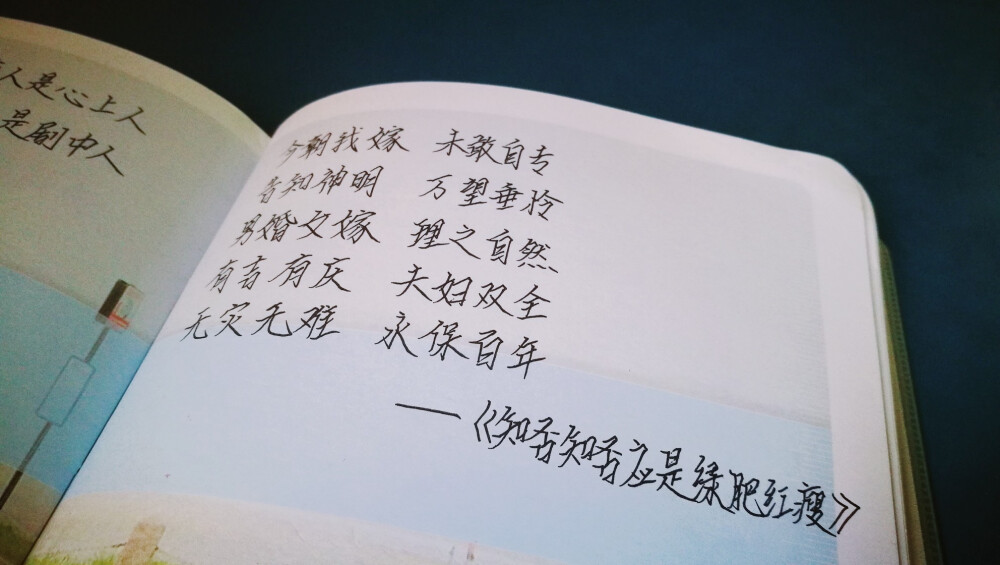 人是心上人
是剧中人
今朝我嫁 未敢自专
告知神明 万望垂怜
男婚女嫁 理之自然
有吉有庆 夫妇双全
无灾无难 永保百年
——《知否知否应是绿肥红瘦》